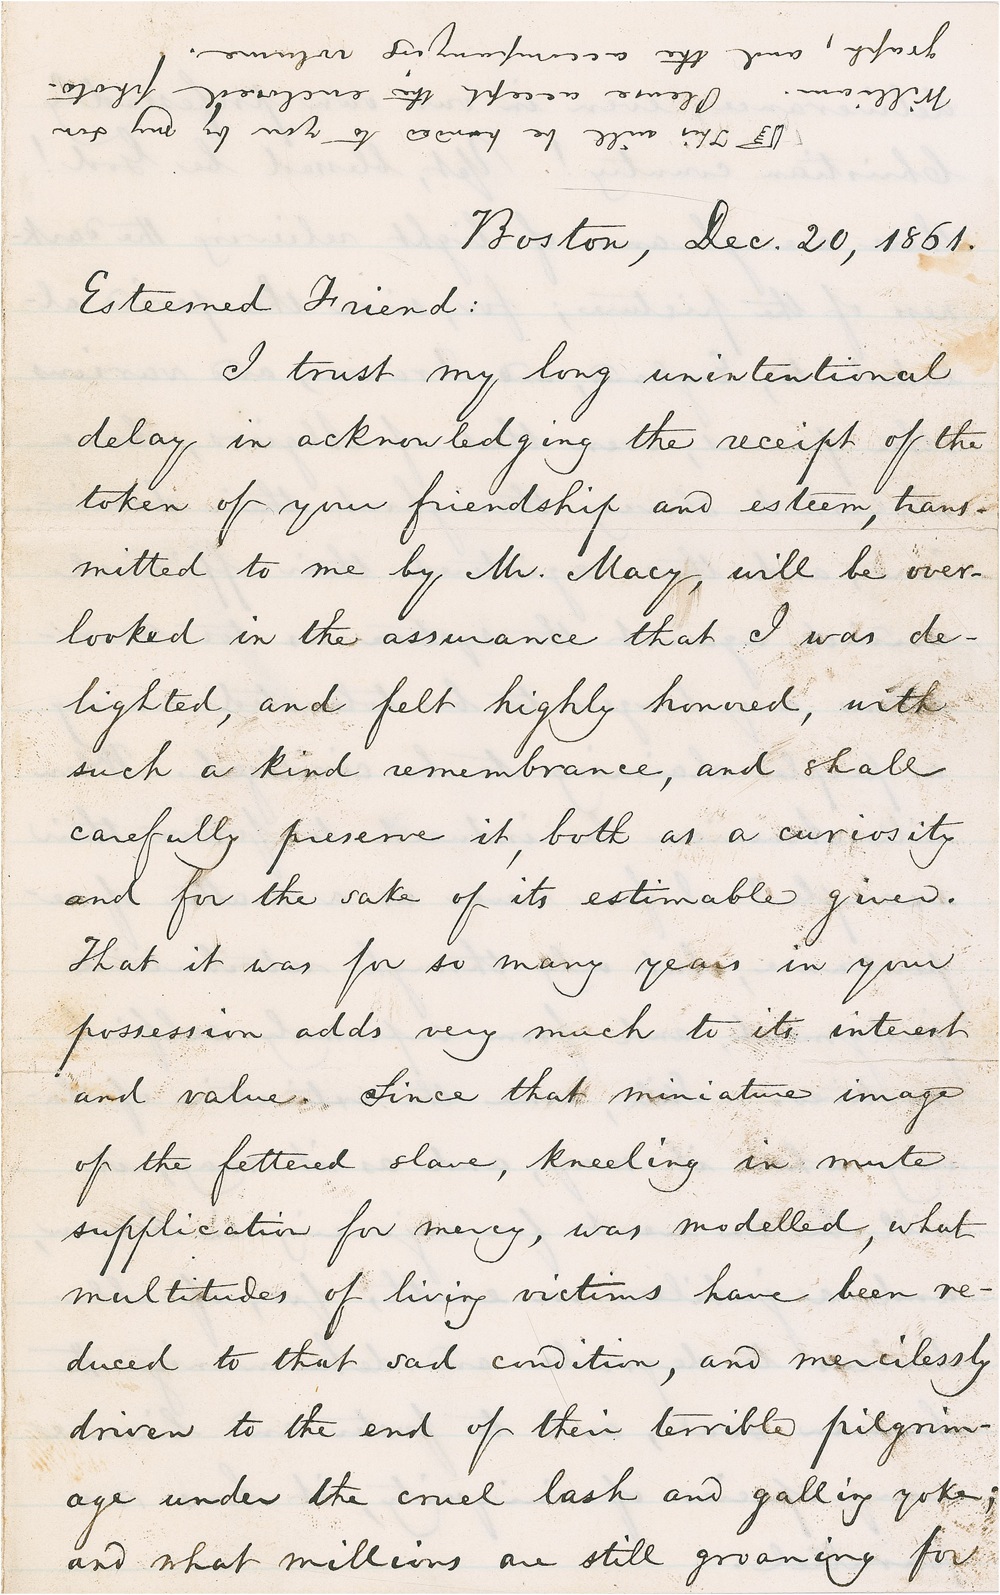 ☞ This will be handed to you by my son
William. Please accept the enclosed photo-
graph, and the accompanying volume.
Boston, Dec. 20, 1861.
Esteemed Friend:
I trust my long unintentional
delay in acknowledging the receipt of the
token of your friendship and esteem, trans-
mitted to me by Mr. Macy, will be over-
looked in the assurance that I was de-
lighted, and felt highly honored, with
such a kind remembrance, and shall
carefully preserve it, both as a curiosity
and for the sake of its estimable giver.
That it was for so many years in your
possession adds very much to its interest
and value. Since that miniature image
of the fettered slave, kneeling in mute
supplication for mercy, was modelled, what
multitudes of living victims have been re-
duced to that sad condition, and mercilessly
driven to the end of their terrible pilgrim-
age under the cruel lash and galling yoke;
and what millions are still groaning for